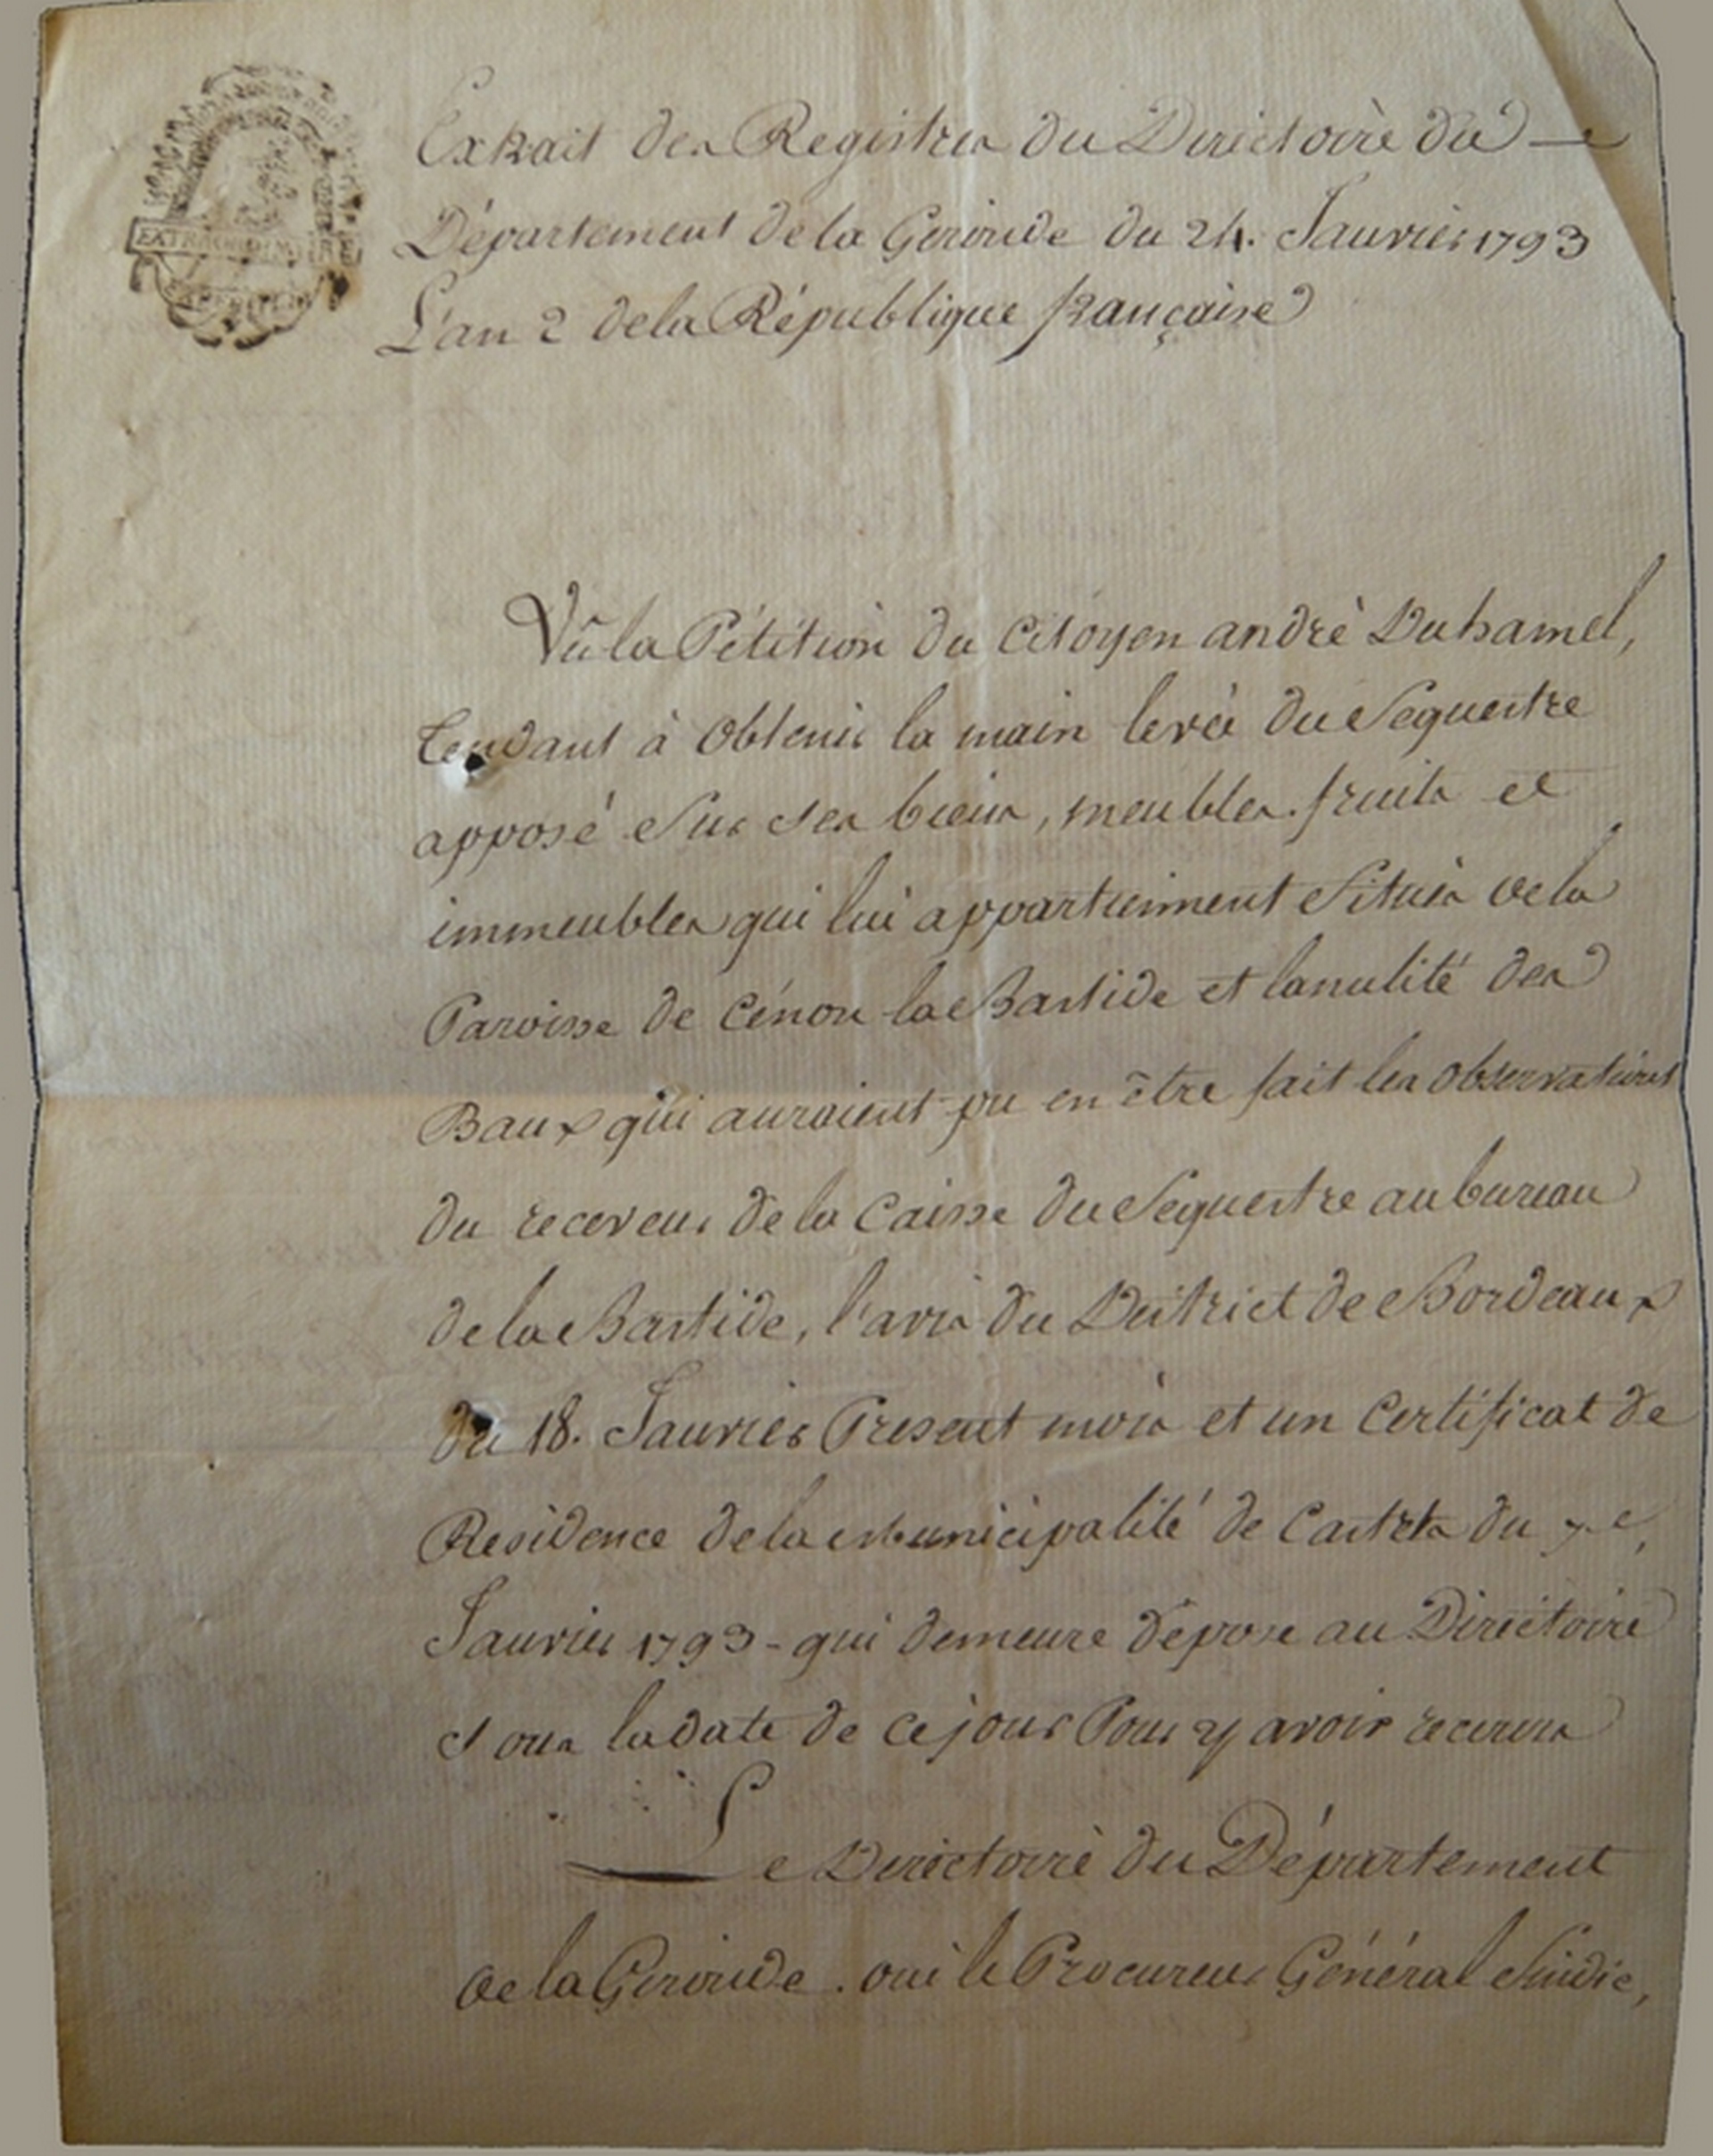 EXTRAORDINAIRE
Extrait des Registres du Directoire du
Département de la Gironde du 24. Janvier 1793
L'an 2 de la République française
Vû la Pétition du Citoyen andré Duhamel,
tendant à Obtenir la main levée du Sequestre
apposé Sur Ses biens, meubles. fruits et
immeubles qui lui appartiennent Situés de la
Paroisse de Cénon la Bastide et la nulité des
Baux qui auroient pu en être fait les Observations
du receveur de la Caisse du Sequestre au bureau
de la Bastide, l'avis du District de Bordeaux
du 18. Janvier Present mois et un Certificat de
Residence de la Municipalité de Castets du
Janvier 1793 - qui demeure déposé au Directoire
Sous la date de ce jour Pour y avoir recours
Le Directoire du Département
de la Gironde. oui le Procureur Général Sindic,